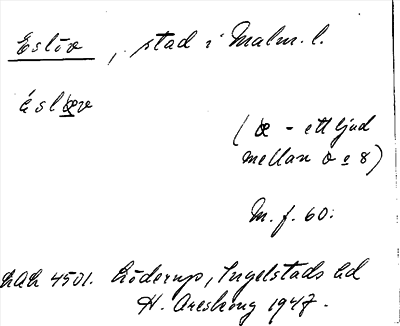 Eslöv, stad i Malm. l.
éslœv
(œ - ett ljud
mellan ö o 8)
M. f. 60:
LAL 4501. Löderup, Ingelstads hd
H. Areskoug 1947.